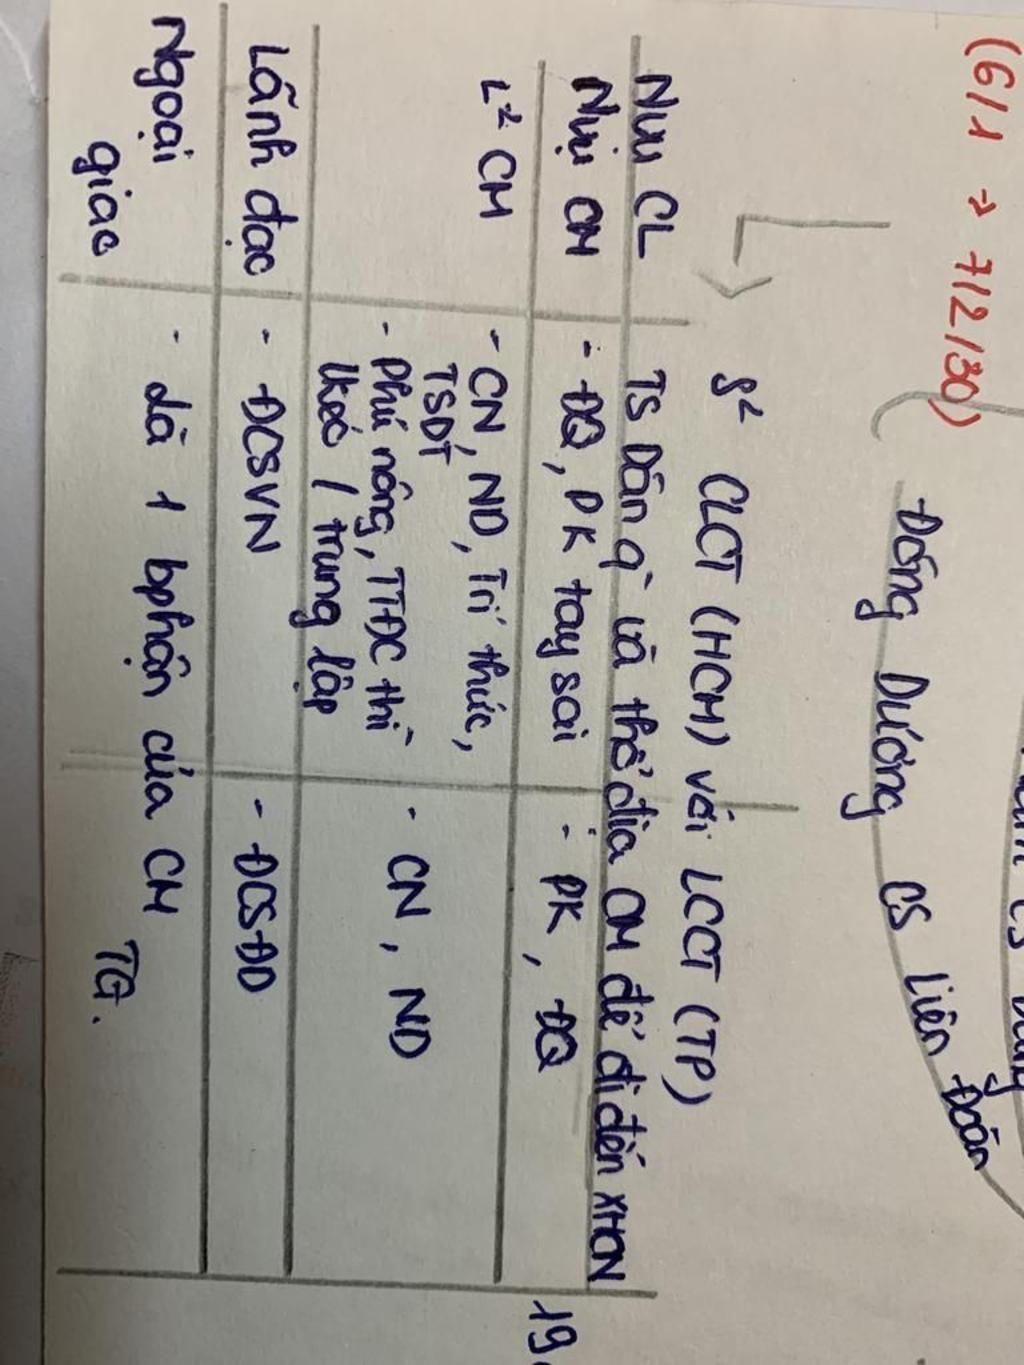 (6/1 → 7/2/30)
Đông Dương CS Liên Đoàn
S² CLCT (HCM) với LCCT (TP)
Nvụ CL
TS Dân q` và thổ địa CM để đi đến XHCN
Nvụ CM
- ĐQ, PK tay sai
- PK, ĐQ
L² CM
- CN, ND, Trí thức,
TSDT
- Phú nông, TTĐC thì
lkéo / trung lập
- CN, ND
Lãnh đạo
- ĐCSVN
- ĐCSĐD
Ngoại
giao
- Là 1 bphận của CM
TG.
19